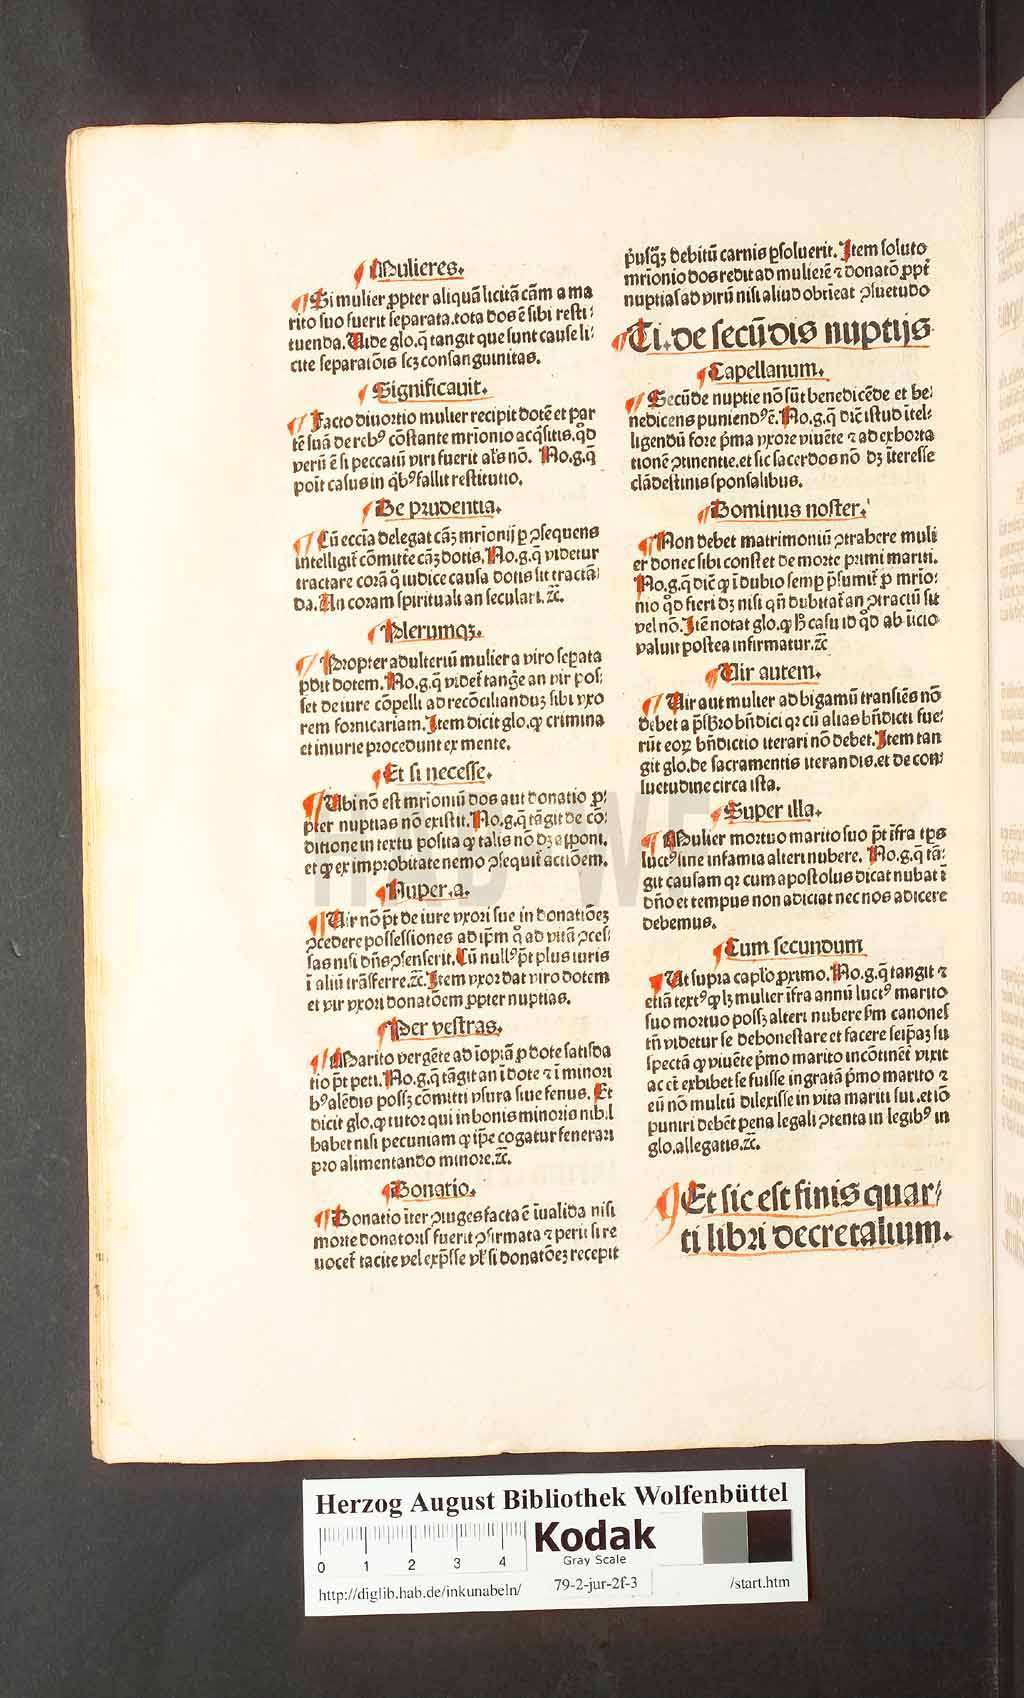 Mulieres.
Si mulier ꝓpter aliquã licitã cãm a ma
rito suo fuerit separata. tota dos ẽ sibi resti⸗
tuenda. Vide glo. q̃ tangit que sunt cause li⸗
cite separatõis scꝫ consanguinitas.
Significauit.
Facto diuortio mulier recipit dotẽ et par
tẽ suã de rebꝰ cõstante mrĩonio acq̇sitis. qð
verũ ẽ si peccatũ viri fuerit al's nõ. No. g. q̃
poĩt casus in q̇bꝰ fallit restitutio.
De prudentia.
Cũ eccĩa delegat cãꝫ mrĩonij ꝑ ꝯsequens
intelligit᷑ cõmitte᷑ cãꝫ dotis. No. g. q̃ videtur
tractare corã q̊ iudice causa dotis sit tractã⸗
da. An coram spirituali an seculari. ⁊c̃.
Plerumqꝫ.
Propter adulteriũ mulier a viro seꝑata
ꝑdit dotem. No. g. q̃ videt᷑ tange᷑ an vir pos⸗
set de iure cõpelli ad recõcilianduꝫ sibi vxo
rem fornicariam. Item dicit glo. ꝙ crimina
et iniurie procedunt ex mente.
Et si necesse.
Vbi nõ est mrĩoniũ dos aut donatio ꝓ⸗
pter nuptias nõ existit. No. g. q̃ tãgit de cõ⸗
ditione in textu posita ꝙ talis nõ dꝫ apponi.
et ꝙ ex improbitate nemo ꝯsequit᷑ actiõem.
Nuper. a.
Vir nõ pt̃ de iure vxori sue in donatiõeꝫ
ꝯcedere possessiones ad ip̃m q̊ ad vitã ꝯces⸗
sas nisi dñs ꝯsenserit. Cũ nullꝰ pt̃ plus iuris
ĩ aliũ trãsferre. ⁊c̃. Item vxor dat viro dotem
et vir vxori donatõem ꝓpter nuptias.
Per vestras.
Marito vergẽte ad ĩopiã ꝓ dote satisda
tio pt̃ peti. No. g. q̃ tãgit an ĩ dote ⁊ ĩ minori
bꝰ alẽdis possꝫ cõmitti vsura siue fenus. Et
dicit glo. ꝙ tutor qui in bonis minoris nihil
habet nisi pecuniam ꝙ ip̃e cogatur fenerari
pro alimentando minore. ⁊c̃.
Donatio.
Donatio ĩter ꝯiuges facta ẽ ĩualida nisi
morte donatoris fuerit ꝯfirmata ⁊ perit si re
uocet᷑ tacite vel exp̃sse vl' si donatõeꝫ recepit
p̃usq̃ꝫ debitũ carnis ꝑsoluerit. Item soluto
mrĩonio dos redit ad mulierẽ ⁊ donatõ ꝓpt᷑
nuptias ad virũ nisi aliud obtĩeat ꝯsuetudo
Ti. de secũdis nuptijs
Capellanum.
Secũde nuptie nõ sũt benedicẽde et be⸗
nedicens puniendꝰ ẽ. No. g. q̃ dic̃ istud ĩtel⸗
ligendũ fore p̃ma vxore viuẽte ⁊ ad exhorta
tionẽ ꝯtinentie. et sic sacerdos nõ dꝫ ĩteresse
clãdestinis sponsalibus.
Dominus noster.
Non debet matrimoniũ ꝯtrahere muli
er donec sibi constet de morte primi mariti.
No. g. q̃ dic̃ ꝙ ĩ dubio semꝑ p̃sumit᷑ ꝓ mrĩo⸗
nio qð fieri dꝫ nisi qñ dubitat᷑ an ꝯtractũ sit
vel nõ. Itẽ notat glo. ꝙ hͦ casu id qð ab ĩicio
valuit postea infirmatur. ⁊c̃
Vir autem.
Vir aut mulier ad bigamũ transiẽs nõ
debet a p̃sbr̃o bñdici qꝛ cũ alias bñdicti fue⸗
rũt eoꝝ bñdictio iterari nõ debet. Item tan
git glo. de sacramentis iterandis. et de con⸗
suetudine circa ista.
Super illa.
Mulier mortuo marito suo pt̃ ĩfra tp̃s
luctꝰ sine infamia alteri nubere. No. g. q̃ tã⸗
git causam qꝛ cum apostolus dicat nubat ĩ
dño et tempus non adiciat nec nos adicere
debemus.
Cum secundum
Ut supra cap̃lo ꝓximo. No. g. q̃ tangit ⁊
etiã textꝰ ꝙ lꝫ mulier ĩfra annũ luctꝰ marito
suo mortuo possꝫ alteri nubere ẜm canones
tñ videtur se dehonestare et facere seip̃aꝫ su
spectã ꝙ viuẽte p̃mo marito incõtinẽt᷑ vixit
ac etĩ exhibet se fuisse ingratã p̃mo marito ⁊
eũ nõ multũ dilexisse in vita mariti sui. et iõ
puniri debẽt pena legali ꝯtenta in legibꝰ in
glo. allegatis. ⁊c̃.
Et sic est finis quar⸗
ti libri decretalium.
HAB WF
Herzog August Bibliothek Wolfenbüttel
0 1 2 3 4
Kodak
Gray Scale
http://diglib.hab.de/inkunabeln/ 79-2-jur-2f-3 /start.htm